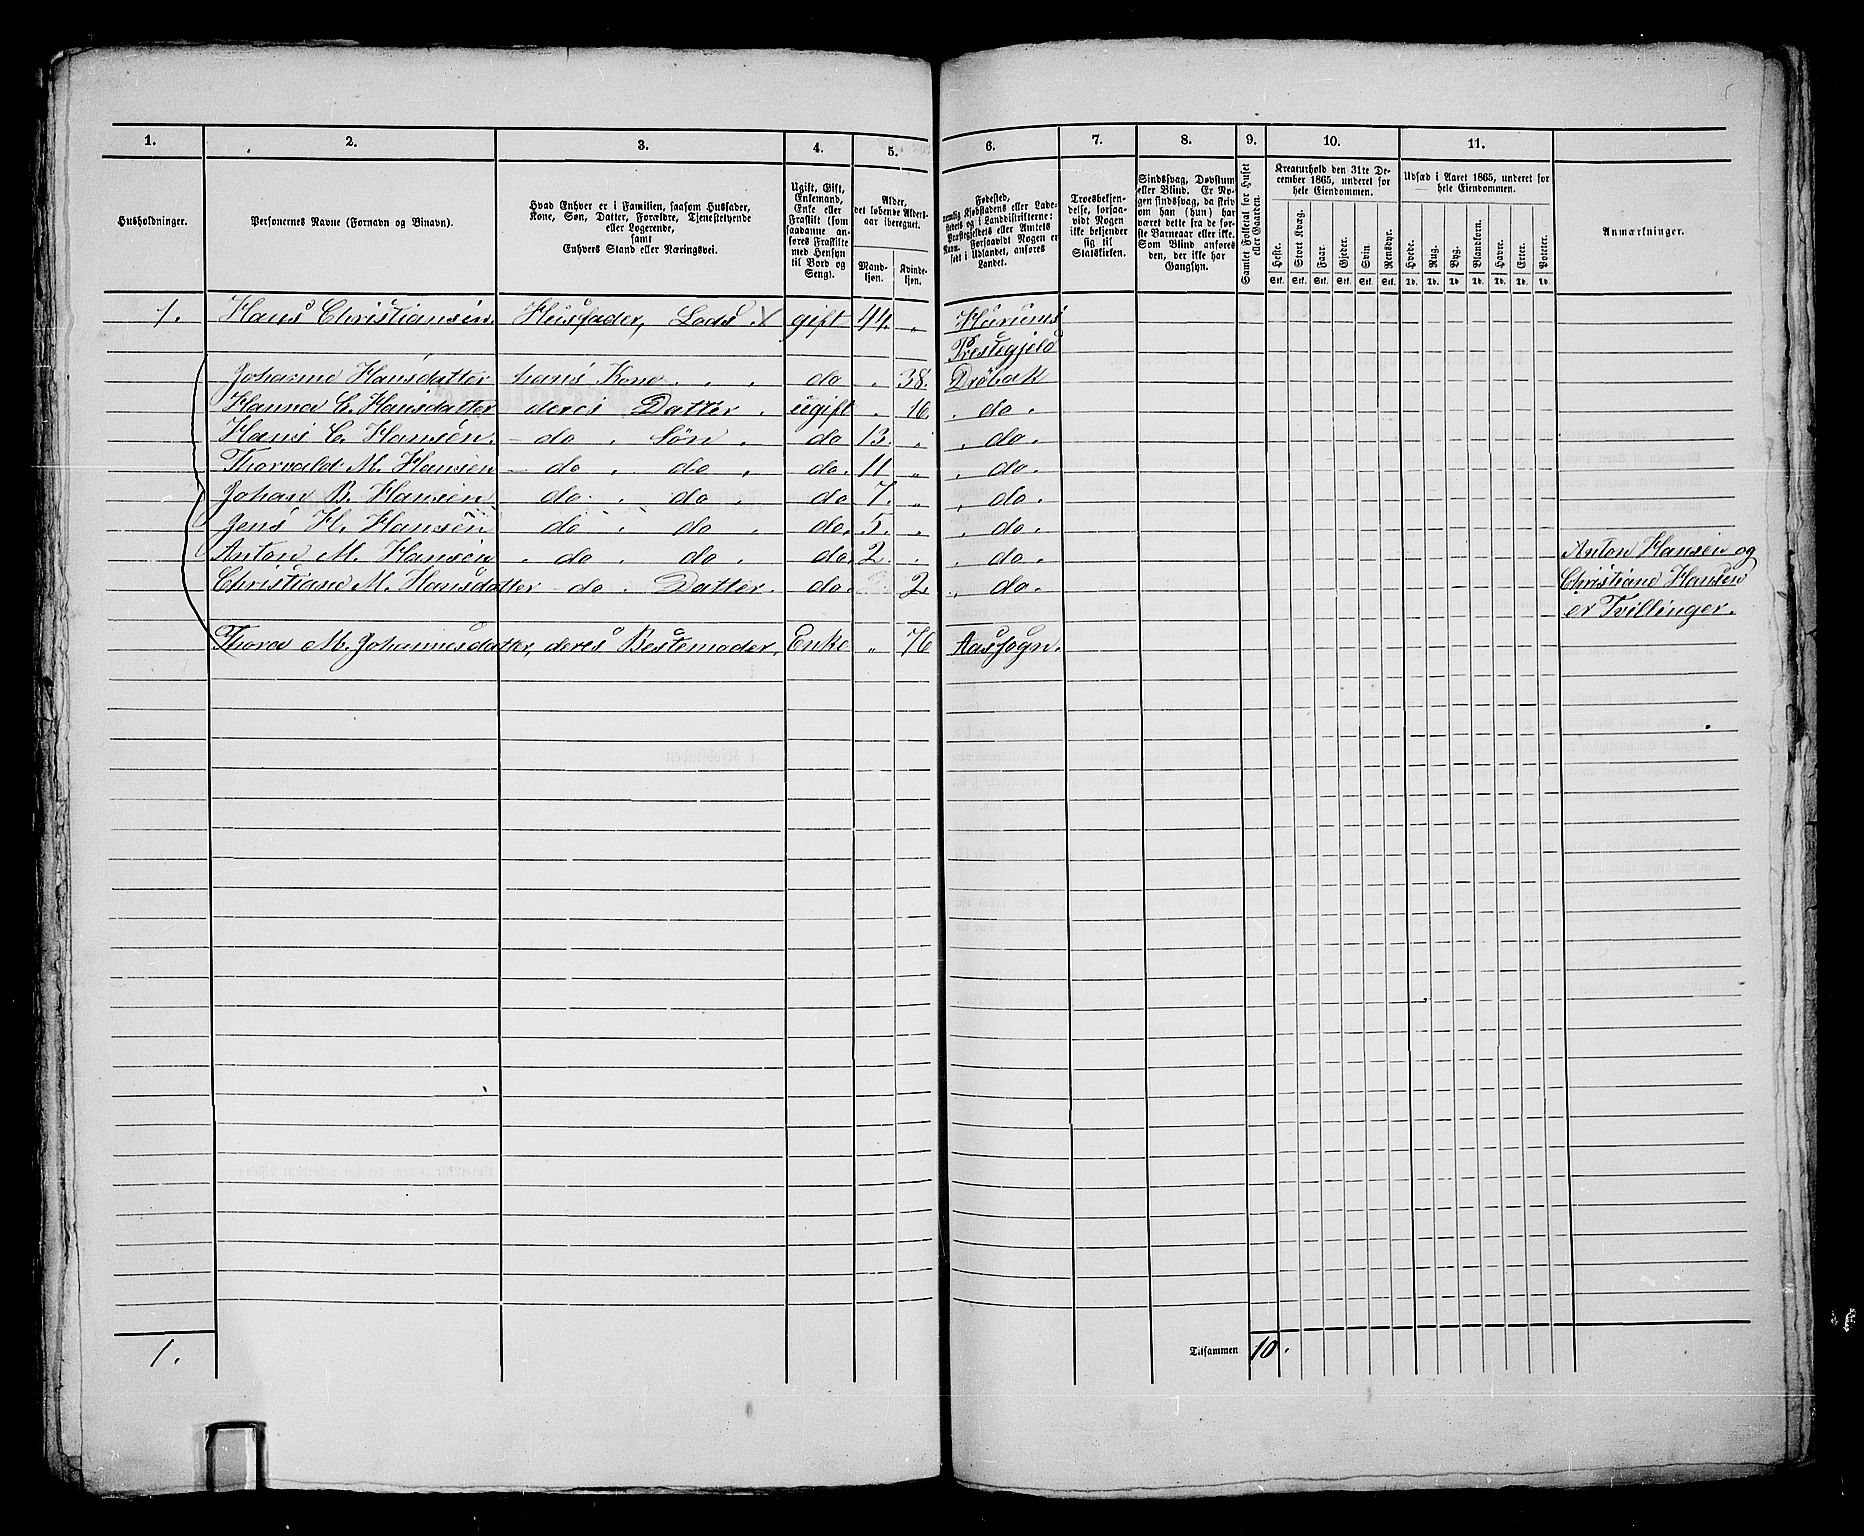 1. 2. 3. 4. 5. 6. 7. 8. 9. 10. 11.
Husholdninger.
Personernes Navne (Fornavn og Binavn).
Hvad Enhver er i Familien, saasom Husfader,
Kone, Søn, Datter, Forældre, Tjenestetyende
eller Logerende,
samt
Enhvers Stand eller Næringsvei.
Ugift, Gift,
Enkemand,
Enke eller
Fraskilt (som
saadanne an-
føres Fraskilte
med Hensyn
til Bord og
Seng).
Alder,
det løbende Alders-
aar iberegnet.
Mand-
kjøn.
Kvinde-
kjøn.
Fødested,
nemlig Kjøbstadens eller Lade-
stedets og i Landdistrikterne:
Præstegjeldets eller Amtets
Navn. Forsaavidt Nogen er
født i Udlandet, anføres
Landet.
Troesbekjen-
delse, forsaa-
vidt Nogen
ikke bekjender
sig til
Statskirken.
Sindssvag, Døvstum
eller Blind. Er No-
gen sindssvag, da skriv
om han (hun) har
været dette fra de før-
ste Barneaar eller ikke.
Som Blind anføres
den, der ikke har
Gangsyn.
Samlet Folketal for Huset
eller Gaarden.
Kreaturhold den 31te De-
cember 1865, underet for
hele Eiendommen.
Heste. Stort Kvæg. Faar. Gjeder. Svin. Rensdyr.
Stk. Stk. Stk. Stk. Stk. Stk.
Udsæd i Aaret 1865, underet for
hele Eiendommen.
Hvede. Rug. Byg. Blandkorn. Havre. Erter. Poteter.
Td. Td. Td. Td. Td. Td. Td.
Anmærkninger.
1. Hans Christiansen. Husfader, Lods X gift 44. " Hurums
Prestegjeld
Johanne Hansdatter hans Kone . . . do " 38. Drøbak
Hanna C. Hansdatter deres Datter . ugift " 16. . do .
Hans C. Hansen. - do . Søn . do 13. " . do .
Thorvald M. Hansen - do . do . do. 11 " . do .
Johan B. Hansen do . do . do 7. " . do .
Jens H. Hansen do . do . do. 5. " . do .
Anton M. Hansen . do . do . do 2. . . do . Anton Hansen og
Christiane M. Hansdatter - do . Datter. do. 2. . do . Christiane Hansen
er Tvillinger.
Thora M. Johannesdatter, deres Bestemoder, Enke " 76 Aas Sogn.
1.
Tilsammen 10.